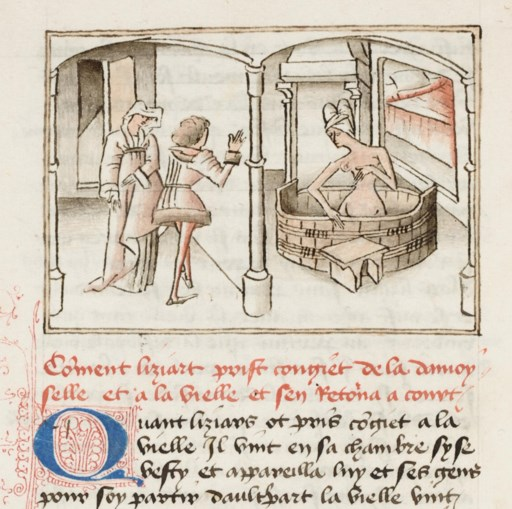 Cõment liziart prist congiet de la damoy
selle et a la vielle et sen retorna a court
Quant liziars ot pris cõgiet a la
vielle Il vint en sa chambre sy se
vesty et appareilla luy et ses gens
pour soy partir daultrpart la vielle vint